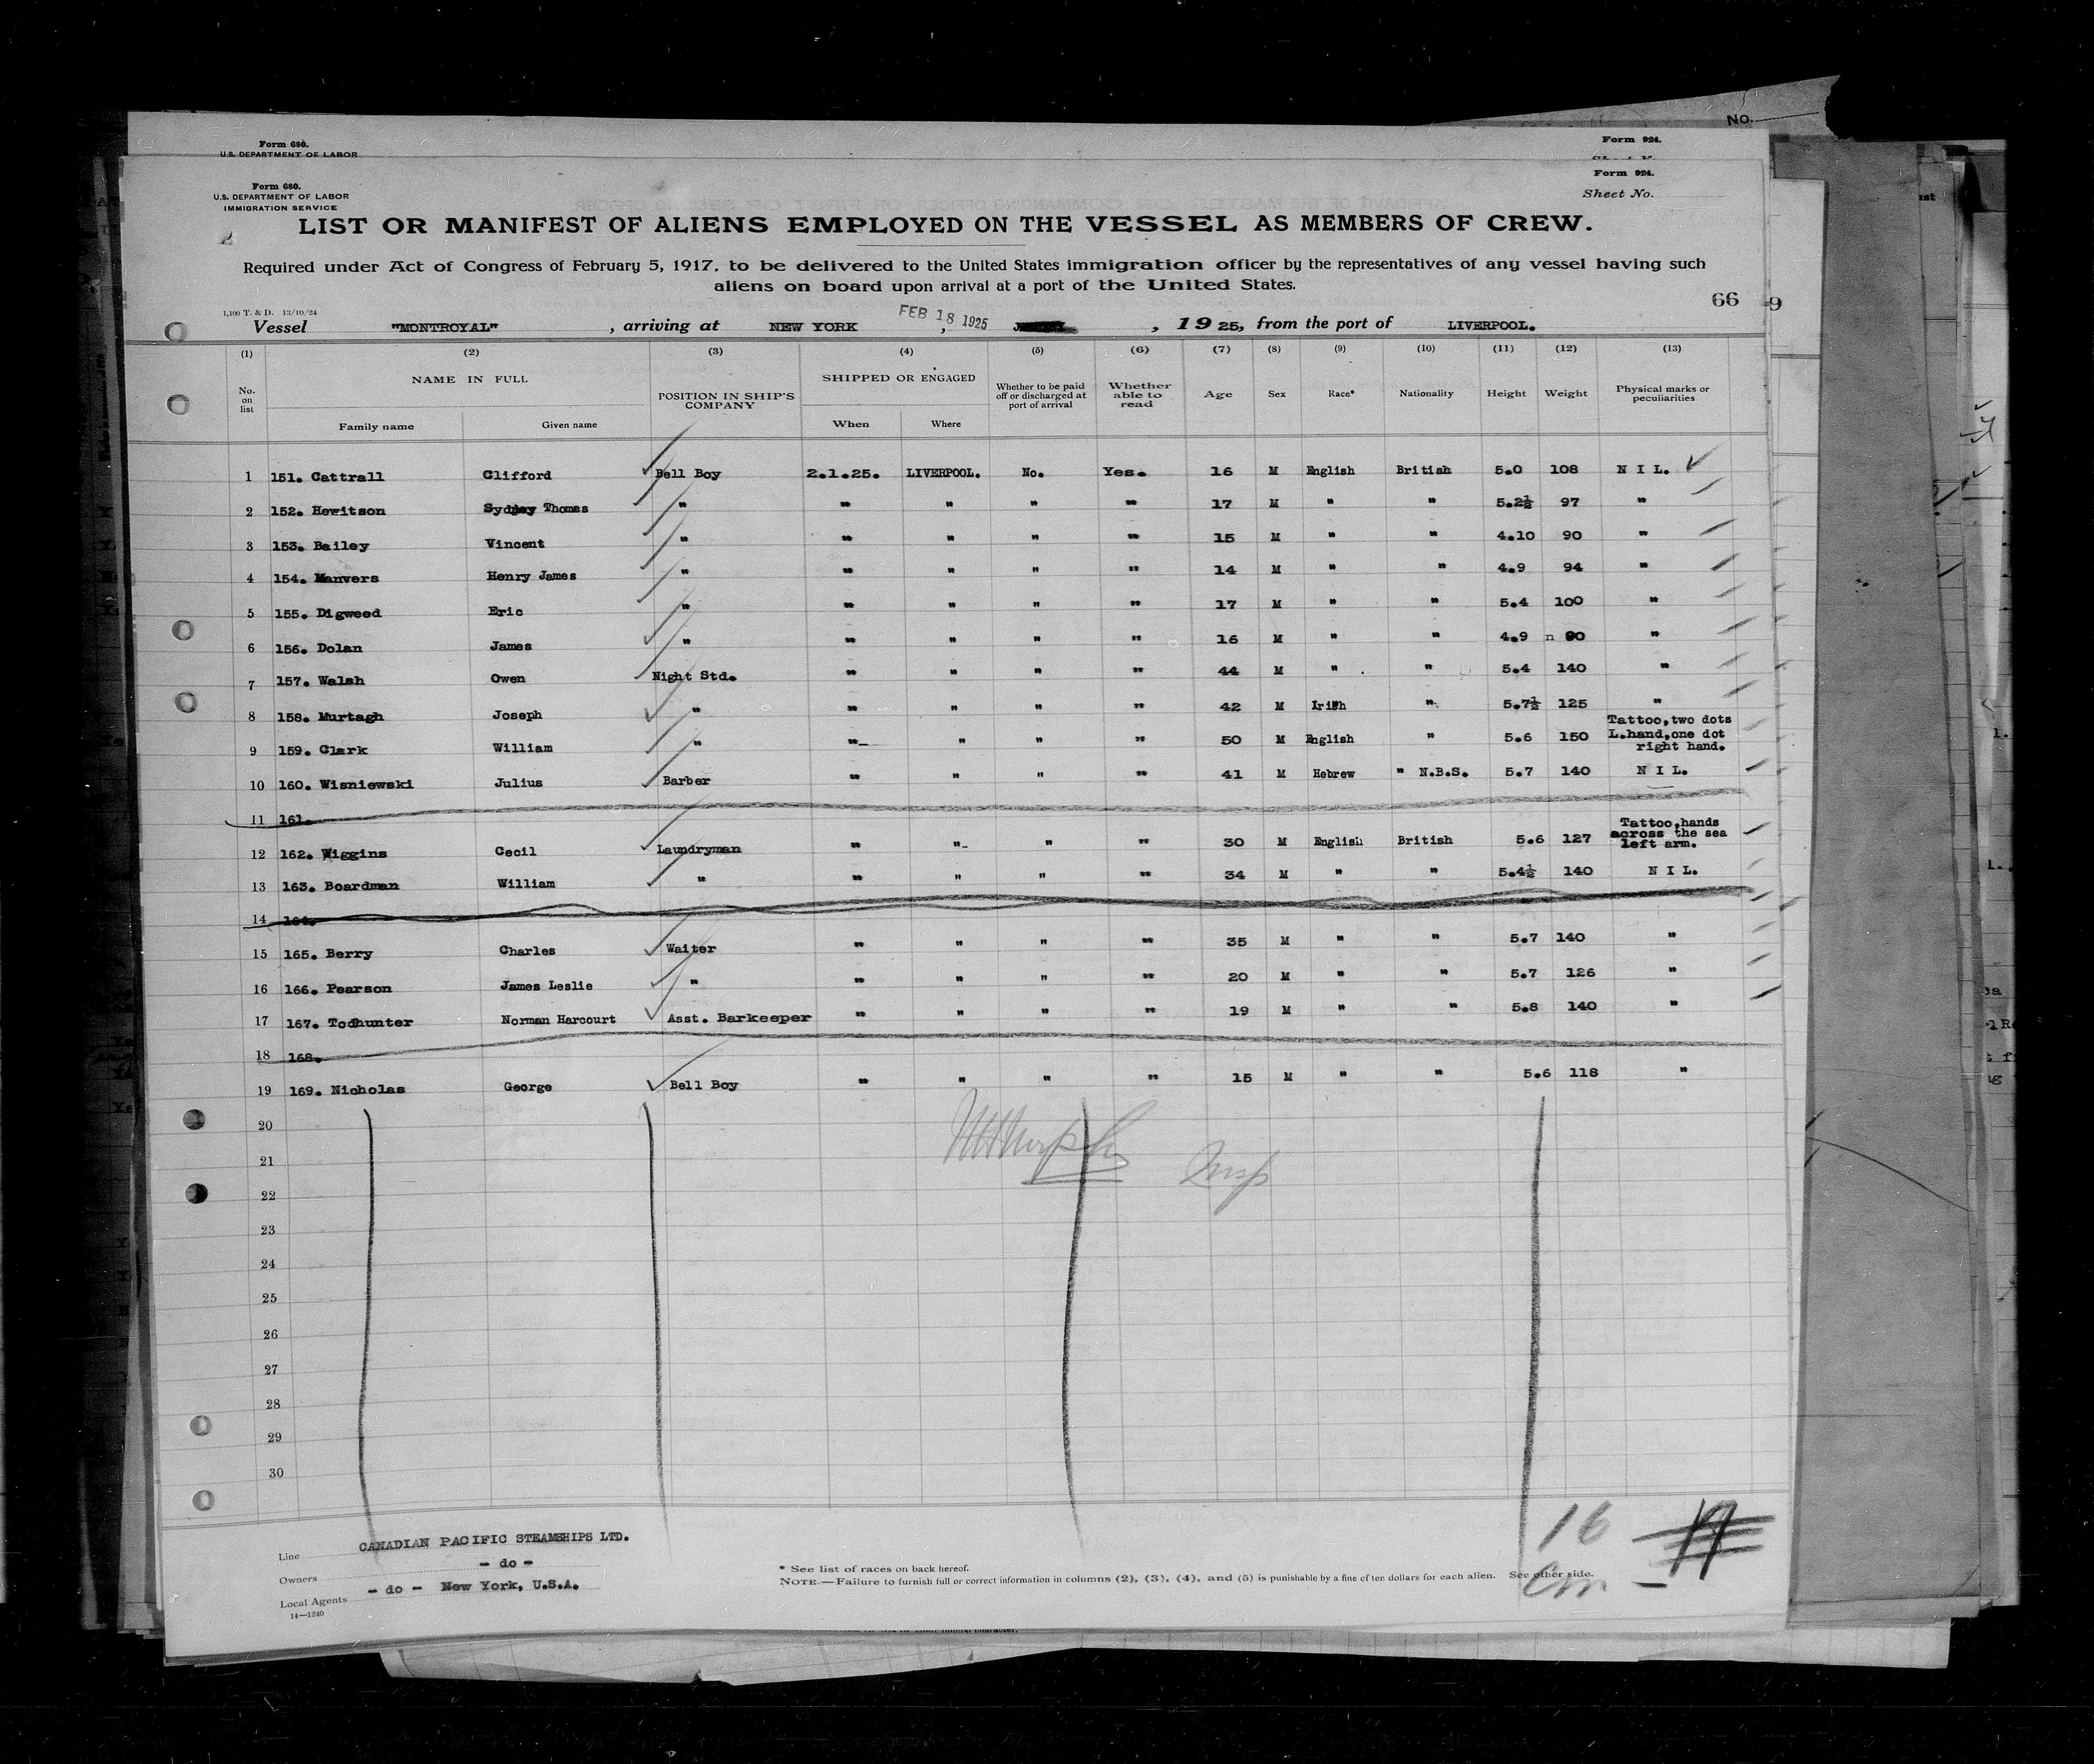 Form 680.
U.S. DEPARTMENT OF LABOR
Form 924.
NO.
Form 680.
U.S. DEPARTMENT OF LABOR
IMMIGRATION SERVICE
Form 924.
Sheet No.
LIST OR MANIFEST OF ALIENS EMPLOYED ON THE VESSEL AS MEMBERS OF CREW.
Required under Act of Congress of February 5, 1917, to be delivered to the United States immigration officer by the representatives of any vessel having such
aliens on board upon arrival at a port of the United States.
66
1,100 T. & D. 13/10/24
Vessel "MONTROYAL", arriving at NEW YORK, FEB 18 1925, 1925, from the port of LIVERPOOL.
(1) (2) (3) (4) (5) (6) (7) (8) (9) (10) (11) (12) (13)
No. on list NAME IN FULL POSITION IN SHIP'S COMPANY SHIPPED OR ENGAGED Whether to be paid off or discharged at port of arrival Whether able to read Age Sex Race* Nationality Height Weight Physical marks or peculiarities
Family name Given name When Where
1 151. Cattrall Clifford Bell Boy 2.1.25. LIVERPOOL. No. Yes. 16 M English British 5.0 108 N I L.
2 152. Hewitson Sydney Thomas " " " " " 17 M " " 5.2½ 97 "
3 153. Bailey Vincent " " " " " 15 M " " 4.10 90 "
4 154. Manvers Henry James " " " " " 14 M " " 4.9 94 "
5 155. Digweed Eric " " " " " 17 M " " 5.4 100 "
6 156. Dolan James " " " " " 16 M " " 4.9 n 90 "
7 157. Walsh Owen Night Std. " " " " 44 M " " 5.4 140 "
8 158. Murtagh Joseph " " " " " 42 M Irish " 5.7½ 125 "
9 159. Clark William " " " " " 50 M English " 5.6 150 Tattoo,two dots L.hand,one dot right hand.
10 160. Wisniewski Julius Barber " " " " 41 M Hebrew " N.B.S. 5.7 140 N I L.
11 161.
12 162. Wiggins Cecil Laundryman " " " " 30 M English British 5.6 127 Tattoo,hands across the sea left arm.
13 163. Boardman William " " " " " 34 M " " 5.4½ 140 N I L.
14 164.
15 165. Berry Charles Waiter " " " " 35 M " " 5.7 140 "
16 166. Pearson James Leslie " " " " " 20 M " " 5.7 126 "
17 167. Todhunter Norman Harcourt Asst. Barkeeper " " " " 19 M " " 5.8 140 "
18 168.
19 169. Nicholas George Bell Boy " " " " 15 M " " 5.6 118 "
20
21
22
23
24
25
26
27
28
29
30
Insp
Line CANADIAN PACIFIC STEAMSHIPS LTD.
Owners - do -
Local Agents - do - New York, U.S.A.
14—1240
* See list of races on back hereof.
NOTE.—Failure to furnish full or correct information in columns (2), (3), (4), and (5) is punishable by a fine of ten dollars for each alien. See other side.
16
17